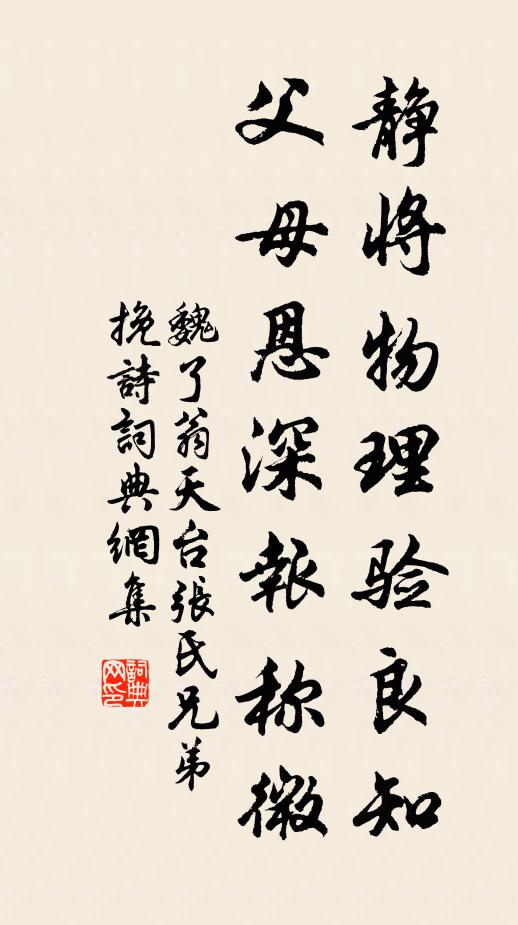 静将物理验良知
父母恩深報称微
魏了翁天台張氏兄弟
挽詩詞典網集
詞典
网印